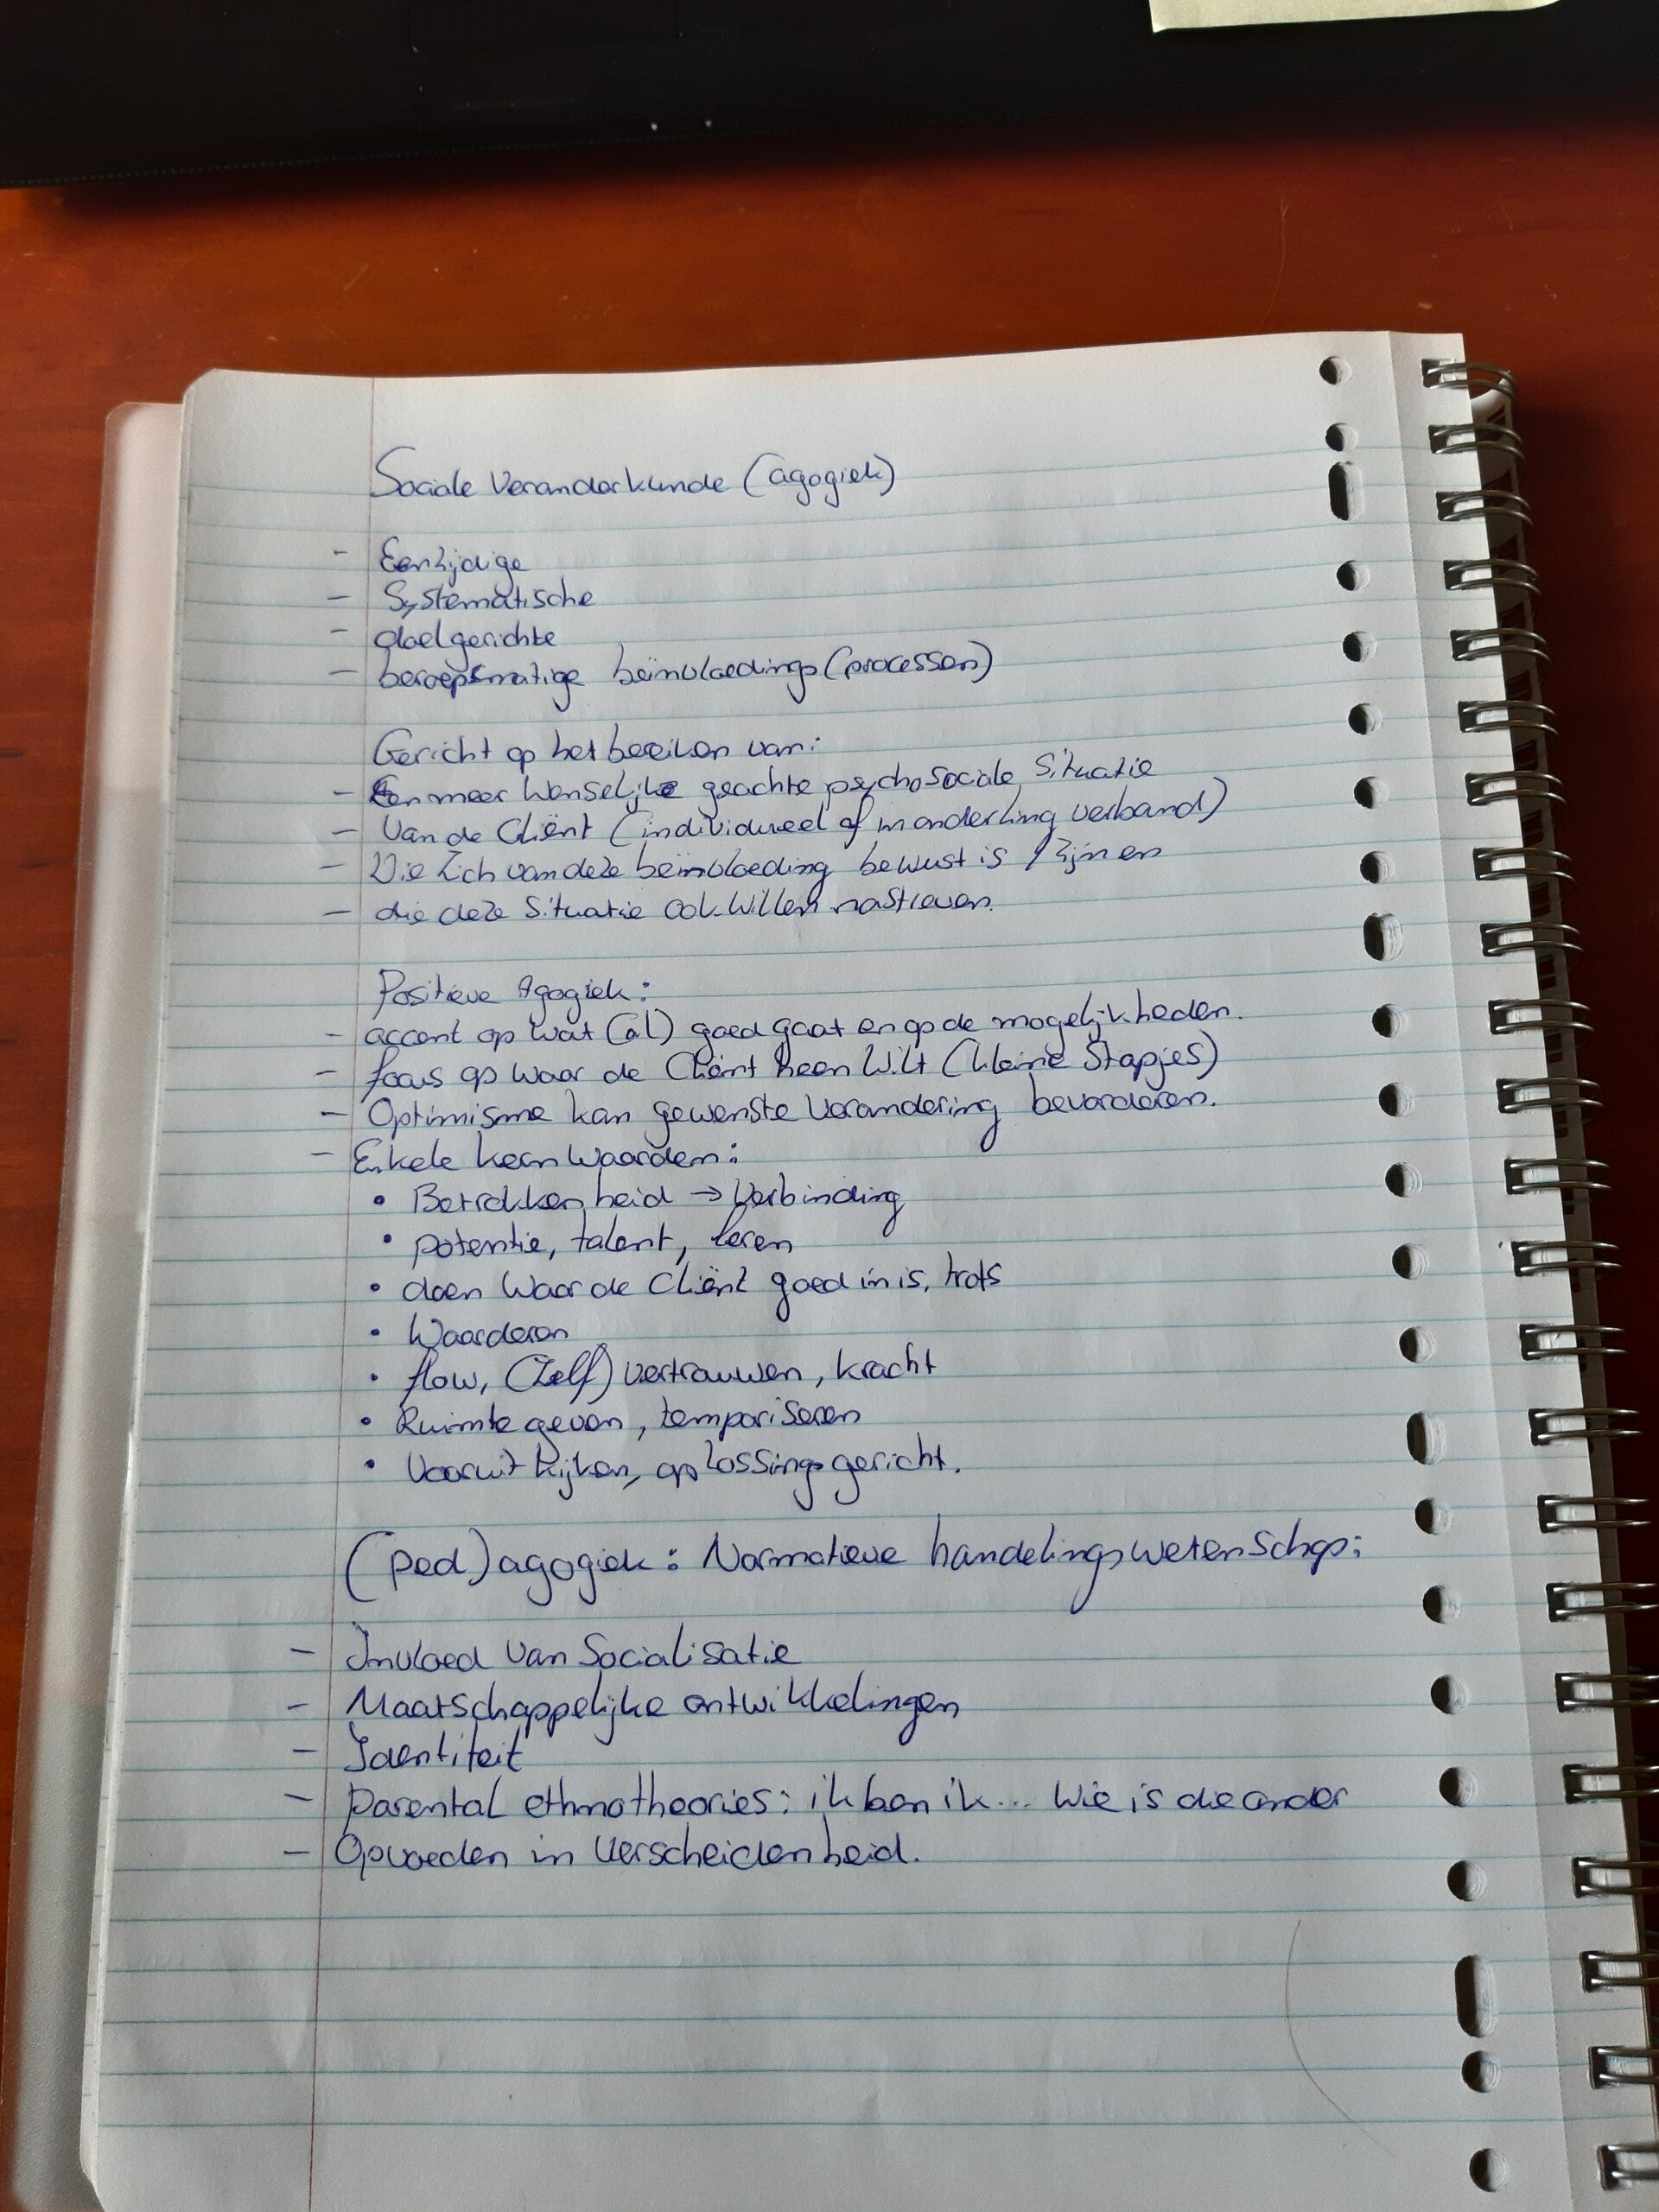 Sociale Veranderkunde (agogiek)
- Eenzijdige
- Systematische
- doelgerichte
- beroepsmatige beïnvloedings(processen)
Gericht op het bereiken van:
- Een meer wenselijke geachte psychosociale situatie
- Van de Cliënt (individueel of in onderling verband)
- Die zich van deze beïnvloeding bewust is / zijn en
- die deze situatie ook willen nastreven.
Positieve Agogiek:
- accent op wat (al) goed gaat en op de mogelijkheden.
- focus op waar de Cliënt heen wilt (kleine stapjes)
- Optimisme kan gewenste verandering bevorderen.
- Enkele kernwaarden:
• Betrokkenheid → Verbinding
• potentie, talent, leren
• doen waar de Cliënt goed in is, trots
• Waarderen
• flow, (Zelf) vertrouwen, kracht
• Ruimte geven, temporiseren
• Vooruit kijken, oplossingsgericht.
(ped)agogiek: Normatieve handelingswetenschap:
- Invloed van Socialisatie
- Maatschappelijke ontwikkelingen
- Identiteit
- parental ethnotheories: ik ben ik... Wie is die ander
- Opvoeden in Verscheidenheid.